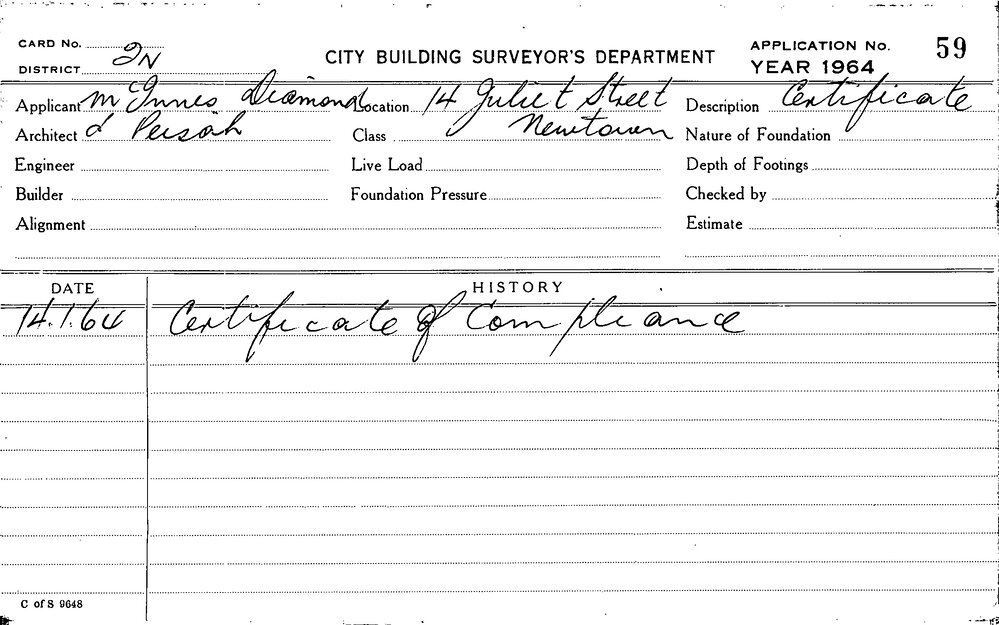 CARD No. 2N
DISTRICT
CITY BUILDING SURVEYOR'S DEPARTMENT
APPLICATION No. 59
YEAR 1964
Applicant McInnes Diamond Location 14 Juliet Street Description Certificate
Architect & Persah Class Newtown Nature of Foundation
Engineer Live Load Depth of Footings
Builder Foundation Pressure Checked by
Alignment Estimate
DATE HISTORY
14.1.64 Certificate of Compliance
C of S 9648